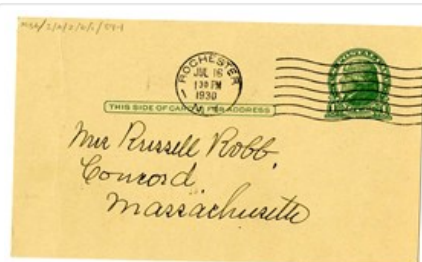 ROCHESTER
JUL 16
1 30 PM
1930
N.Y.
THIS SIDE OF CARD IS FOR ADDRESS
Mrs Russell Robb,
Concord,
Massachusetts